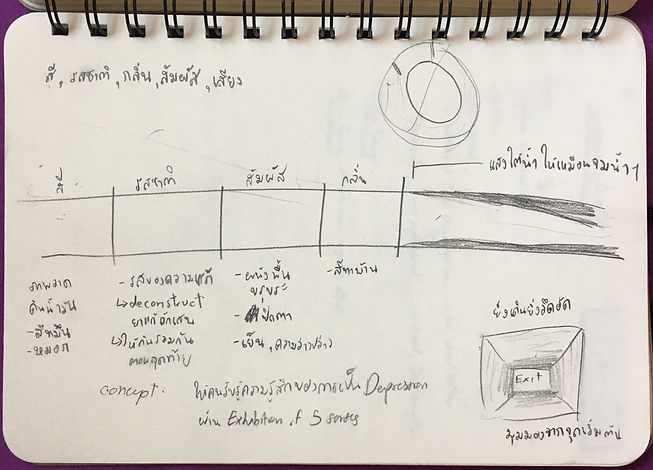 สี, รสชาติ, กลิ่น, สัมผัส, เสียง
แสงใต้น้ำ ให้เหมือนจมน้ำๆ
สี
รสชาติ
สัมผัส
กลิ่น
ภาพวาด
สีน้ำมัน
- สีทึบ
- หมอก
- รสของความ
↳ deconstruct
ยาแก้อักเสบ
↳ให้กินรวมกัน
ตอนสุดท้าย
- ผนังพื้น
ขรุขระ
- ปิดตา
- เย็น, ความว่างเปล่า
- สีทาบ้าน
ยิ่งเดินยิ่งอึดอัด
Exit
มุมมองจากจุดเริ่มต้น
concept: ให้คนรับรู้ความรู้สึกของการเป็น Depression
ผ่าน Exhibition of 5 senses